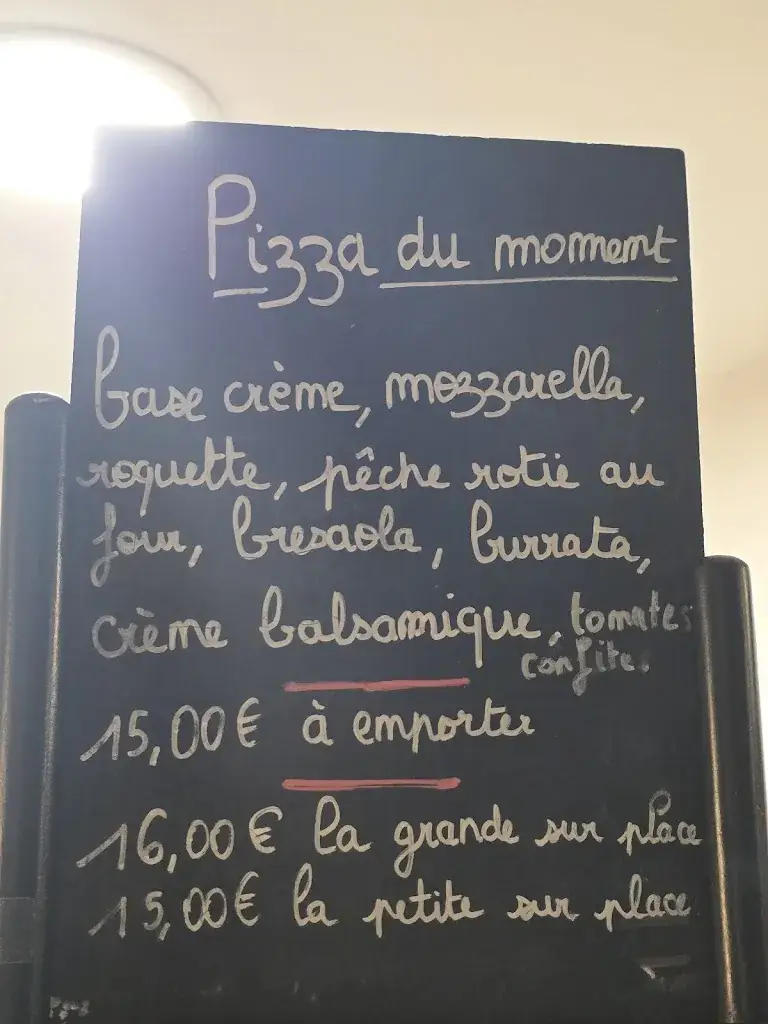 Pizza du moment
base crème, mozzarella,
roquette, pêche rotie au
four, bresaola, burrata,
crème balsamique, tomates
confites
15,00€ à emporter
16,00€ la grande sur place
15,00€ la petite sur place